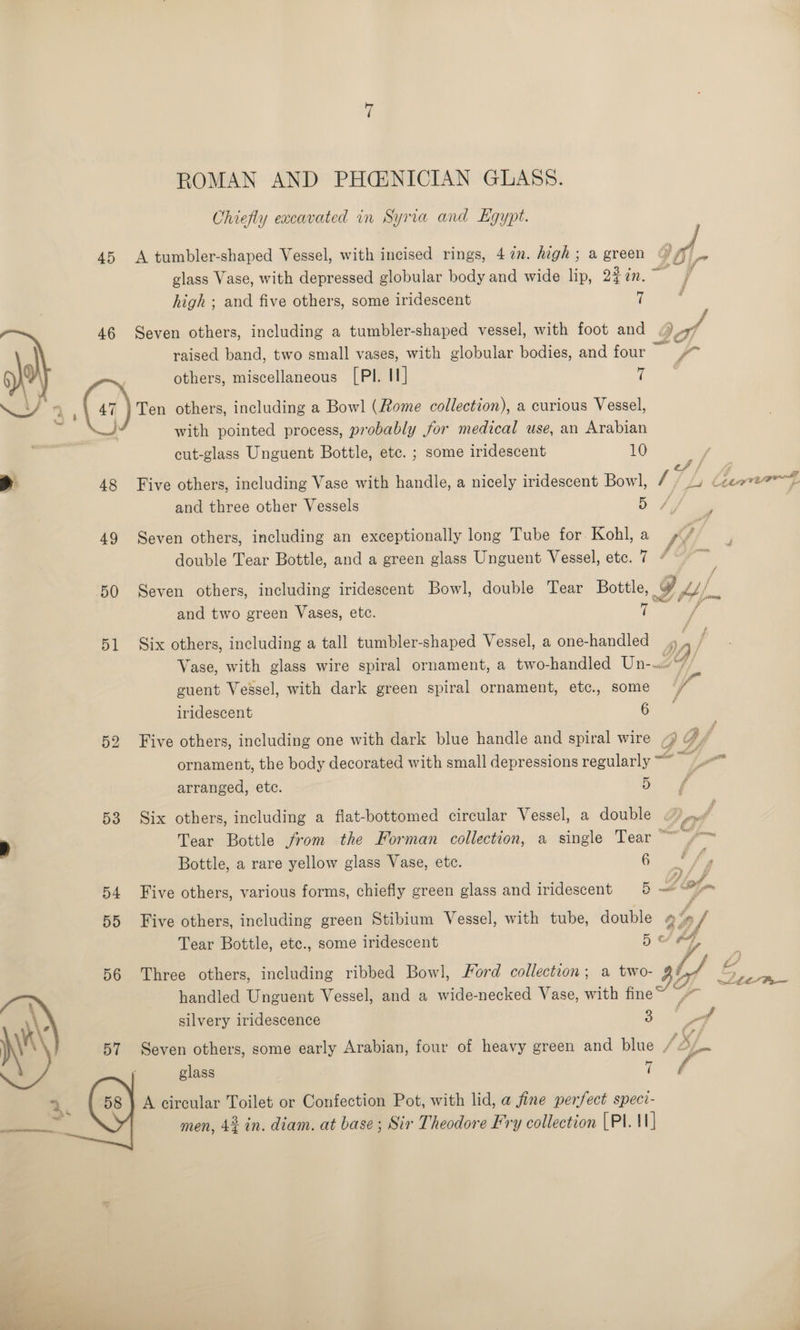 7
ROMAN AND PHŒNICIAN GLASS.
Chiefly excavated in Syria and Egypt.
45 A tumbler-shaped Vessel, with incised rings, 4 in. high; a green
glass Vase, with depressed globular body and wide lip, 2¾ in.
high; and five others, some iridescent 7
46 Seven others, including a tumbler-shaped vessel, with foot and
raised band, two small vases, with globular bodies, and four
others, miscellaneous [Pl. II] 7
47 Ten others, including a Bowl (Rome collection), a curious Vessel,
with pointed process, probably for medical use, an Arabian
cut-glass Unguent Bottle, etc.; some iridescent 10
48 Five others, including Vase with handle, a nicely iridescent Bowl,
and three other Vessels 5
49 Seven others, including an exceptionally long Tube for Kohl, a
double Tear Bottle, and a green glass Unguent Vessel, etc. 7
50 Seven others, including iridescent Bowl, double Tear Bottle,
and two green Vases, etc. 7
51 Six others, including a tall tumbler-shaped Vessel, a one-handled
Vase, with glass wire spiral ornament, a two-handled Un-
guent Vessel, with dark green spiral ornament, etc., some
iridescent 6
52 Five others, including one with dark blue handle and spiral wire
ornament, the body decorated with small depressions regularly
arranged, etc. 5
53 Six others, including a flat-bottomed circular Vessel, a double
Tear Bottle from the Forman collection, a single Tear
Bottle, a rare yellow glass Vase, etc. 6
54 Five others, various forms, chiefly green glass and iridescent 5
55 Five others, including green Stibium Vessel, with tube, double
Tear Bottle, etc., some iridescent 5
56 Three others, including ribbed Bowl, Ford collection; a two-
handled Unguent Vessel, and a wide-necked Vase, with fine
silvery iridescence 3
57 Seven others, some early Arabian, four of heavy green and blue
glass 7
58 A circular Toilet or Confection Pot, with lid, a fine perfect speci-
men, 4¾ in. diam. at base; Sir Theodore Fry collection [Pl. II]